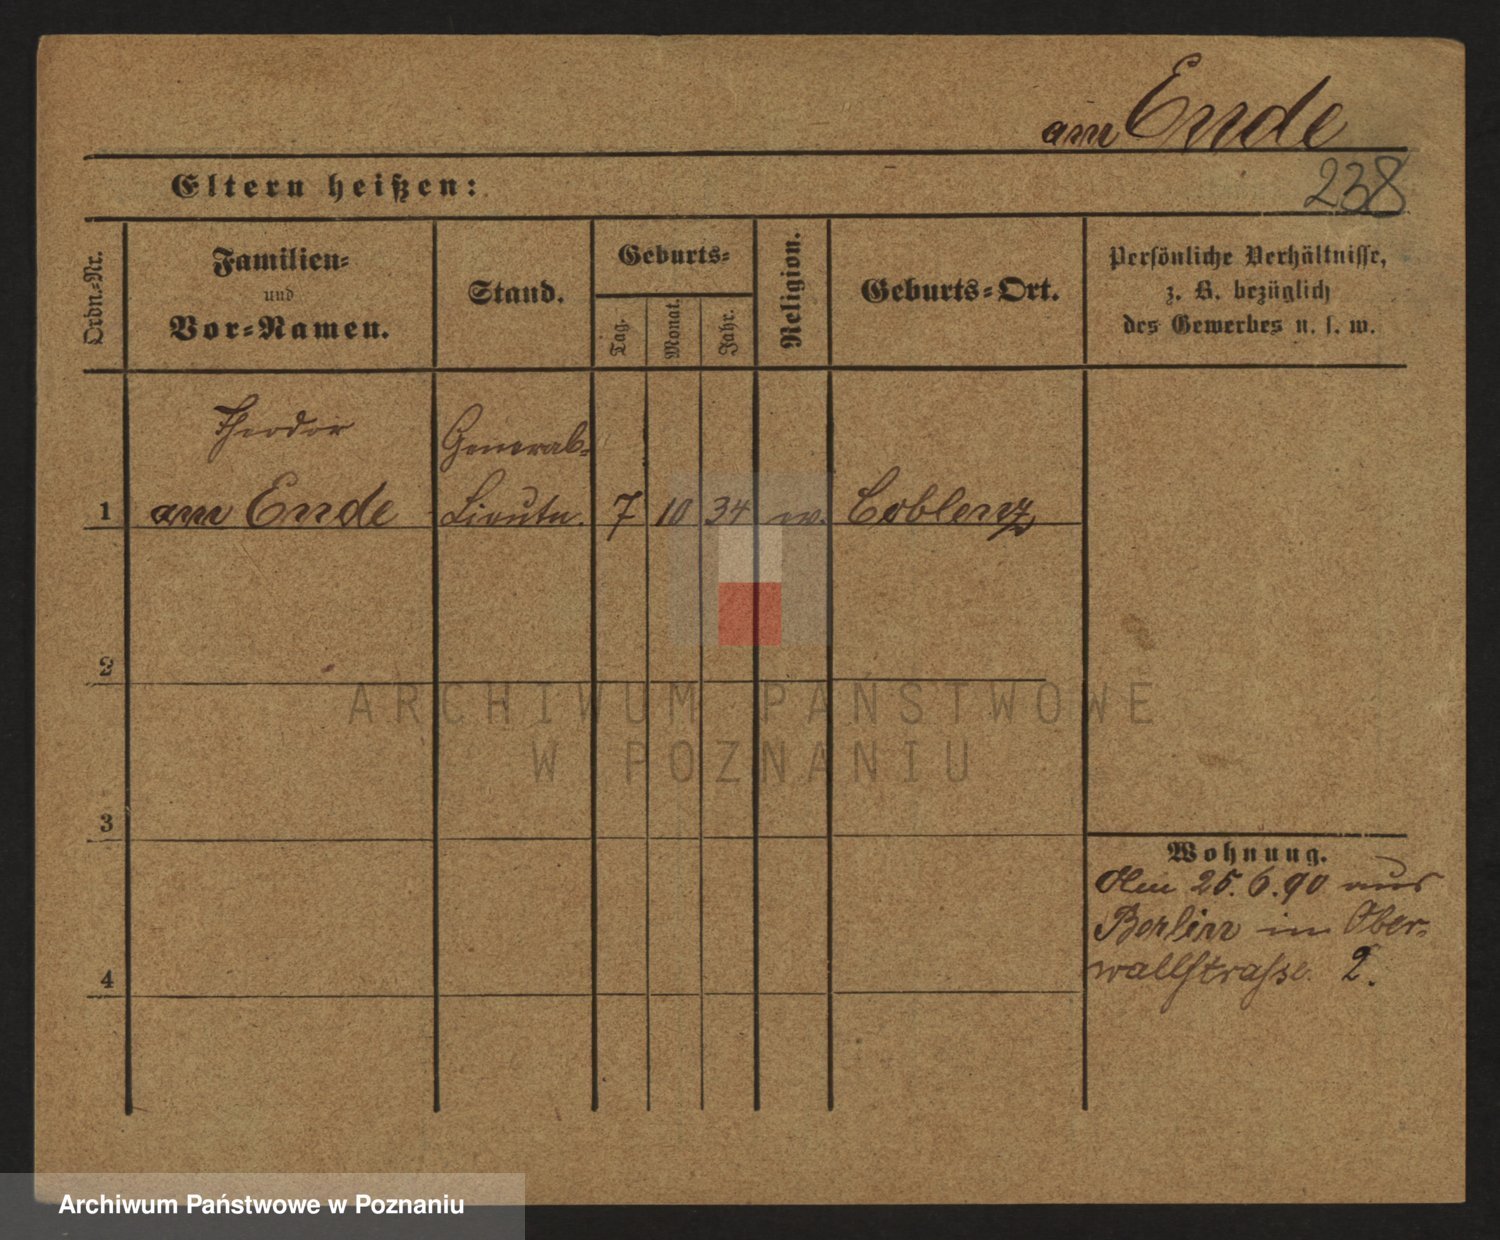 am Ende
238
Eltern heißen:
Ordn.-Nr.
Familien-
und
Vor-Namen.
Stand.
Geburts-
Tag.
Monat.
Jahr.
Religion.
Geburts-Ort.
Persönliche Verhältnisse,
z. B. bezüglich
des Gewerbes u. s. w.
Theodor
General-
1 am Ende Lieutn. 7 10 34 ev. Coblenz
2
3
4
Wohnung.
Am 25.6.90 aus
Berlin in Ober-
wallstrasse 2.
ARCHIWUM PAŃSTWOWE
W POZNANIU
Archiwum Państwowe w Poznaniu